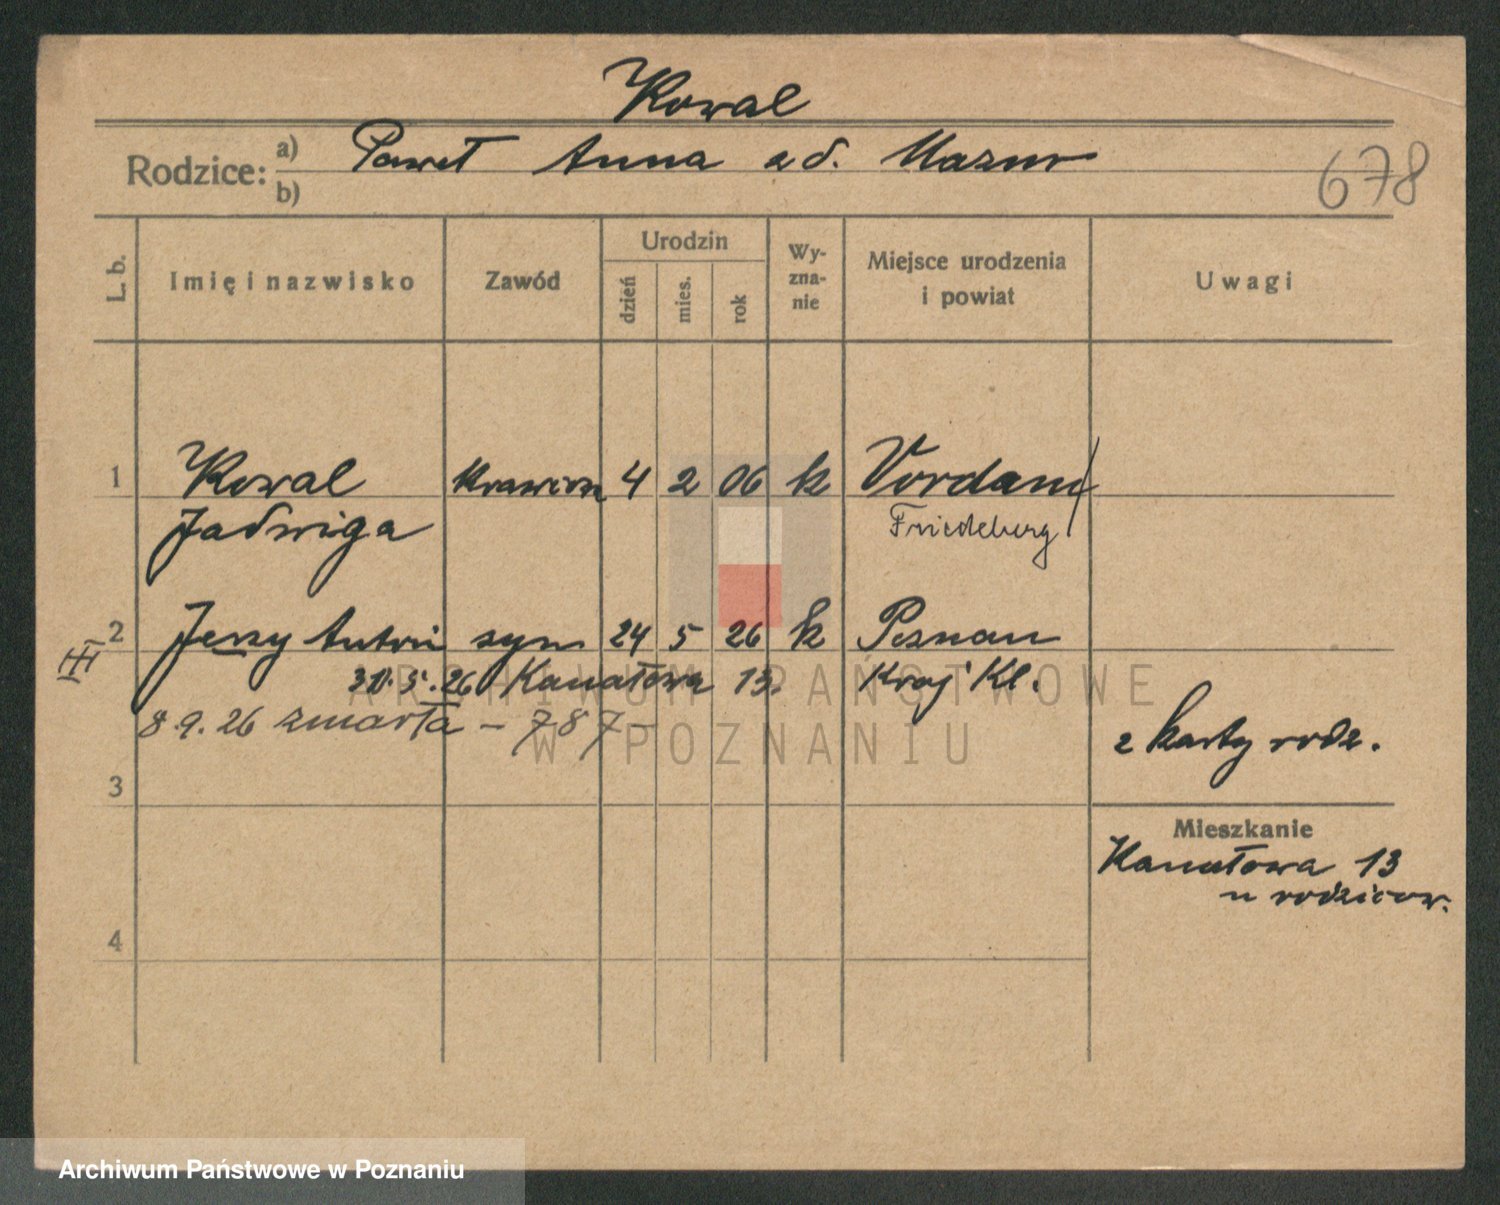 Kowal
Rodzice: a) Paweł Anna z d. Mazur
b)
678
L. b. Imię i nazwisko Zawód Urodzin dzień mies. rok Wy-zna-nie Miejsce urodzenia i powiat Uwagi
1 Kowal Krawicze 4 2 06 k Vordam
Jadwiga Friedeberg
2 Jerzy Antoni syn 24 5 26 k Poznań
III 31. 5. 26 Kanałowa 13. Kraj Kl.
8.9.26 zmarła - 787 -
z karty rodz.
3
Mieszkanie
Kanałowa 13
u rodziców.
4
ARCHIWUM PAŃSTWOWE
W POZNANIU
Archiwum Państwowe w Poznaniu